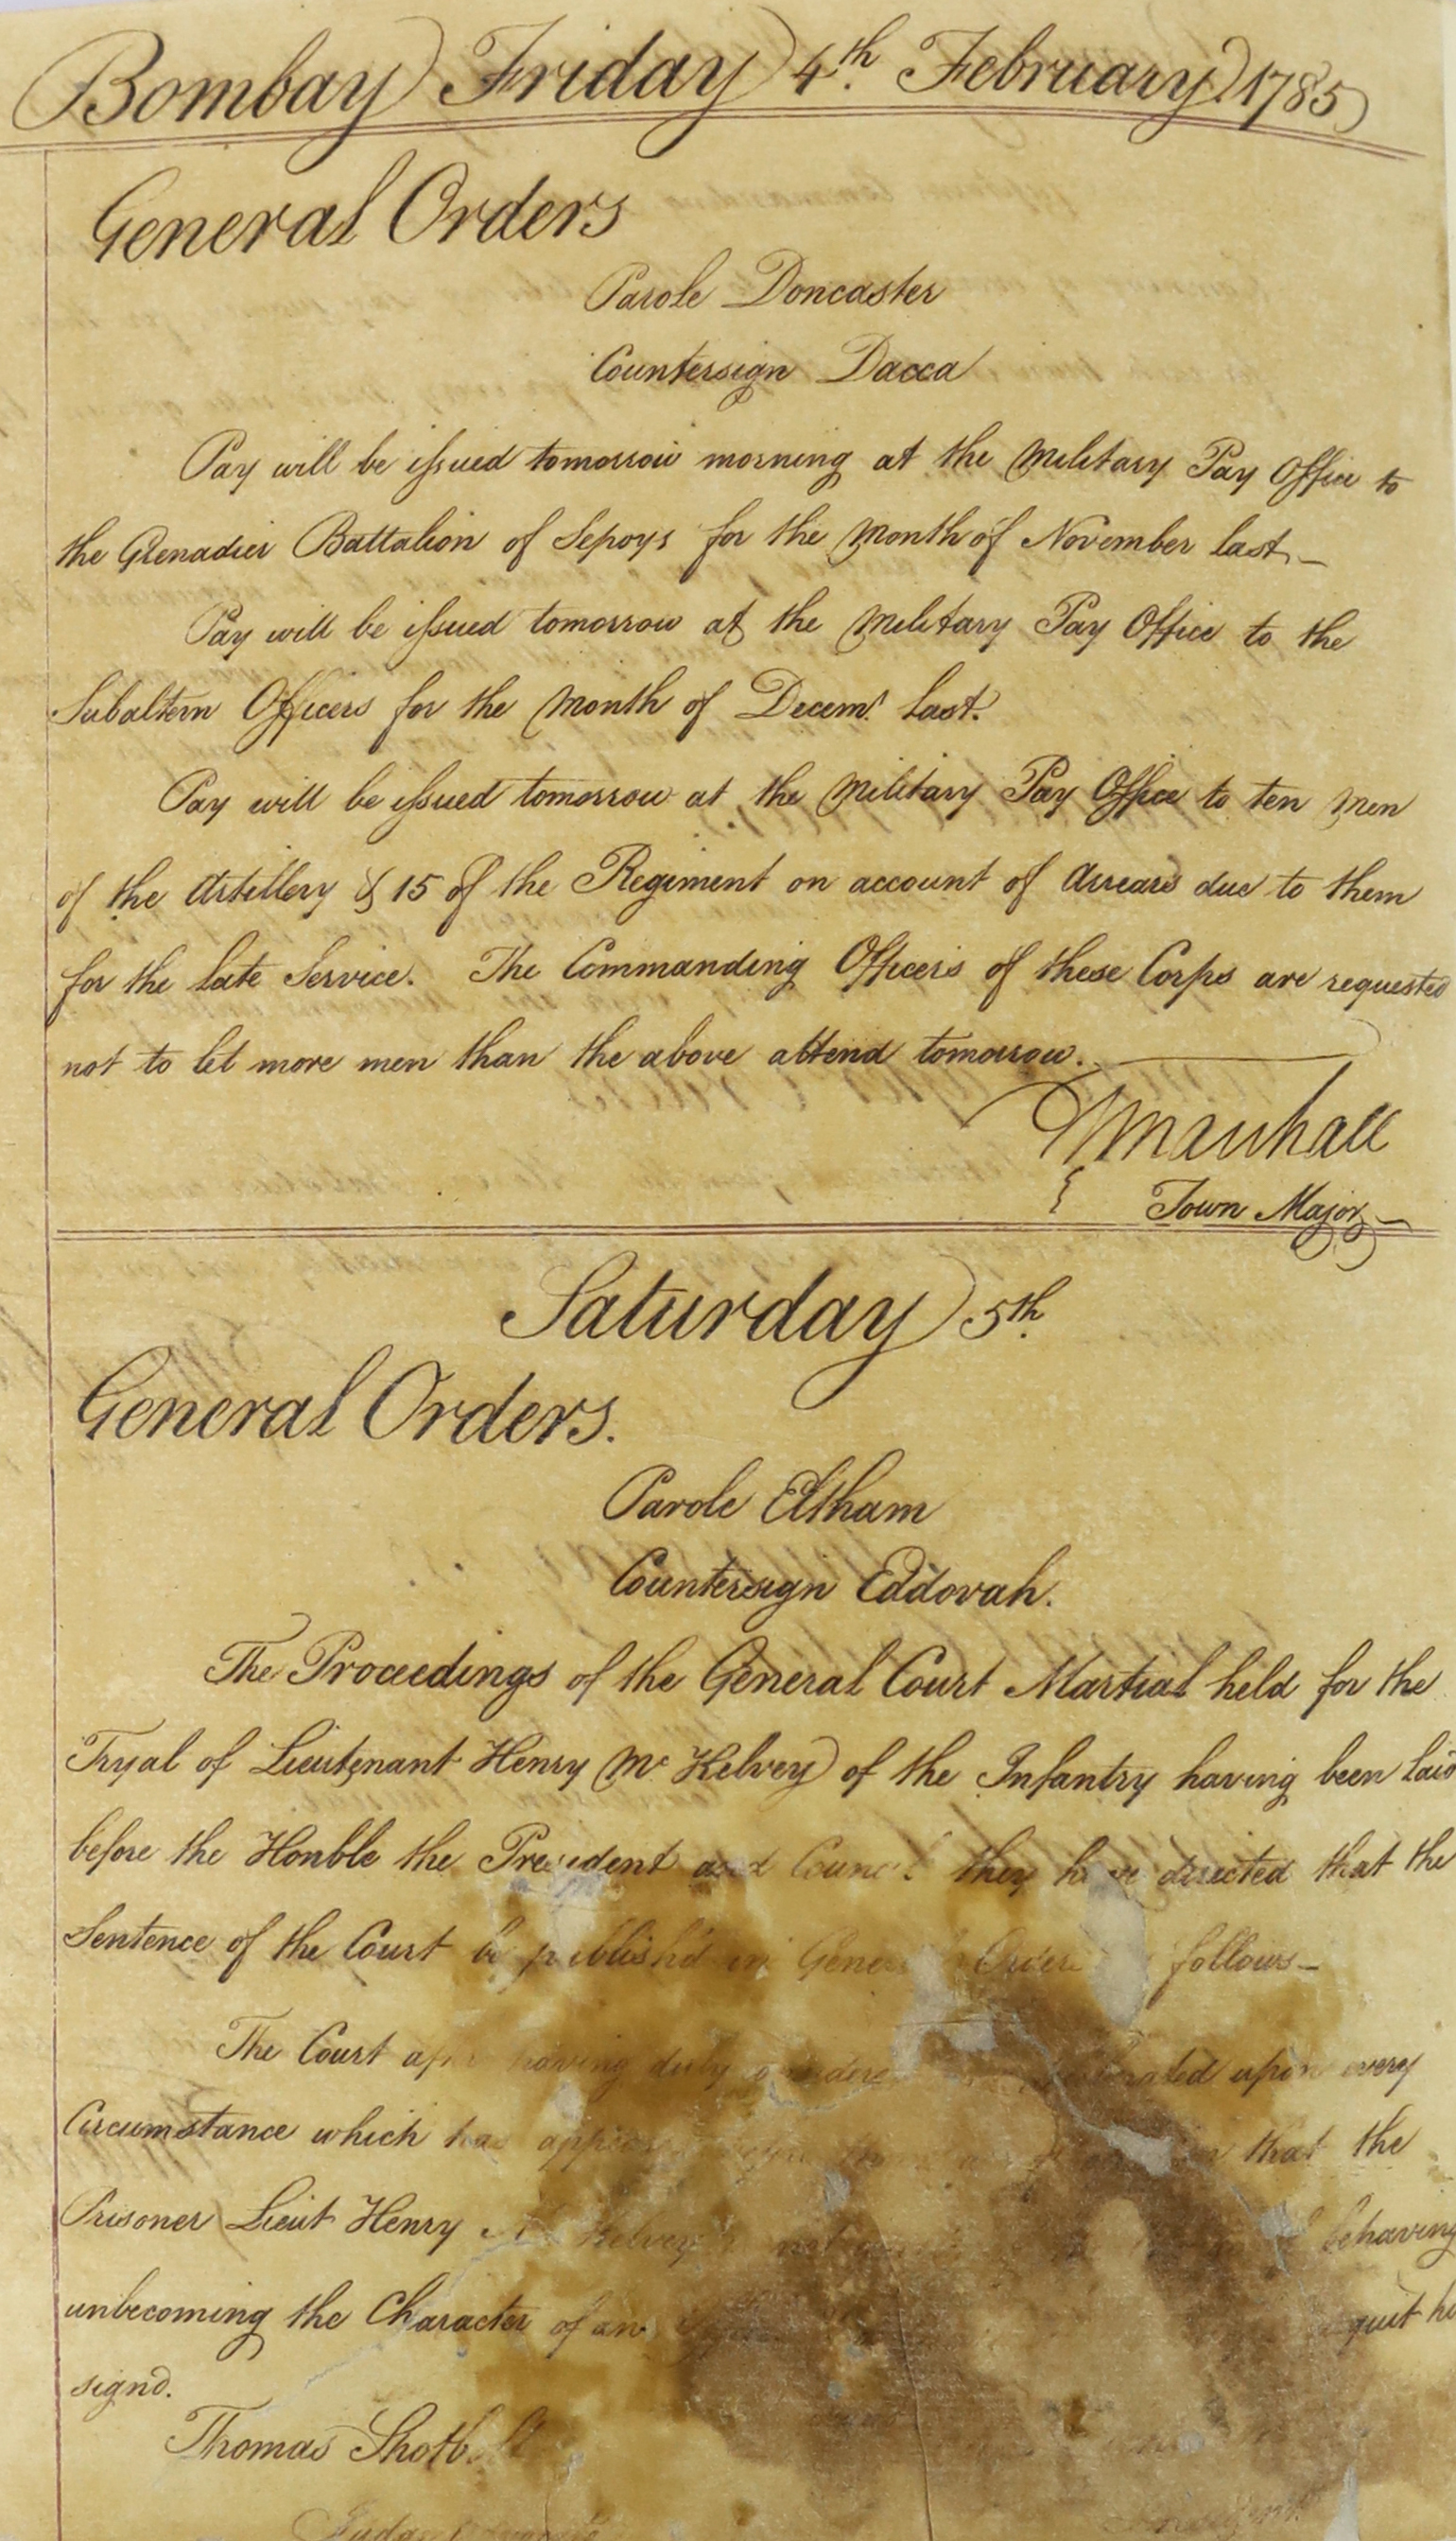 Bombay Friday 4th. February 1785
General Orders
Parole Doncaster
Countersign Dacca
Pay will be issued tomorrow morning at the Military Pay Office to
the Grenadier Battalion of Sepoys for the Month of November last. –
Pay will be issued tomorrow at the Military Pay Office to the
Subaltern Officers for the Month of Decemr. last.
Pay will be issued tomorrow at the Military Pay Office to ten Men
of the Artillery & 15 of the Regiment on account of Arrears due to them
for the late Service. The Commanding Officers of these Corps are requested
not to let more men than the above attend tomorrow.
Marshall
Town Major
Saturday 5th.
General Orders.
Parole Eltham
Countersign Eddovah.
The Proceedings of the General Court Martial held for the
Tryal of Lieutenant Henry Mc Kelvey of the Infantry having been laid
before the Honble the President and Council they have directed that the
Sentence of the Court be publish'd in General Orders follows –
The Court after having duly upon every
Circumstance which has that the
Prisoner Lieut Henry Kelvey not behaving
unbecoming the Character of an quit
signd.
Thomas